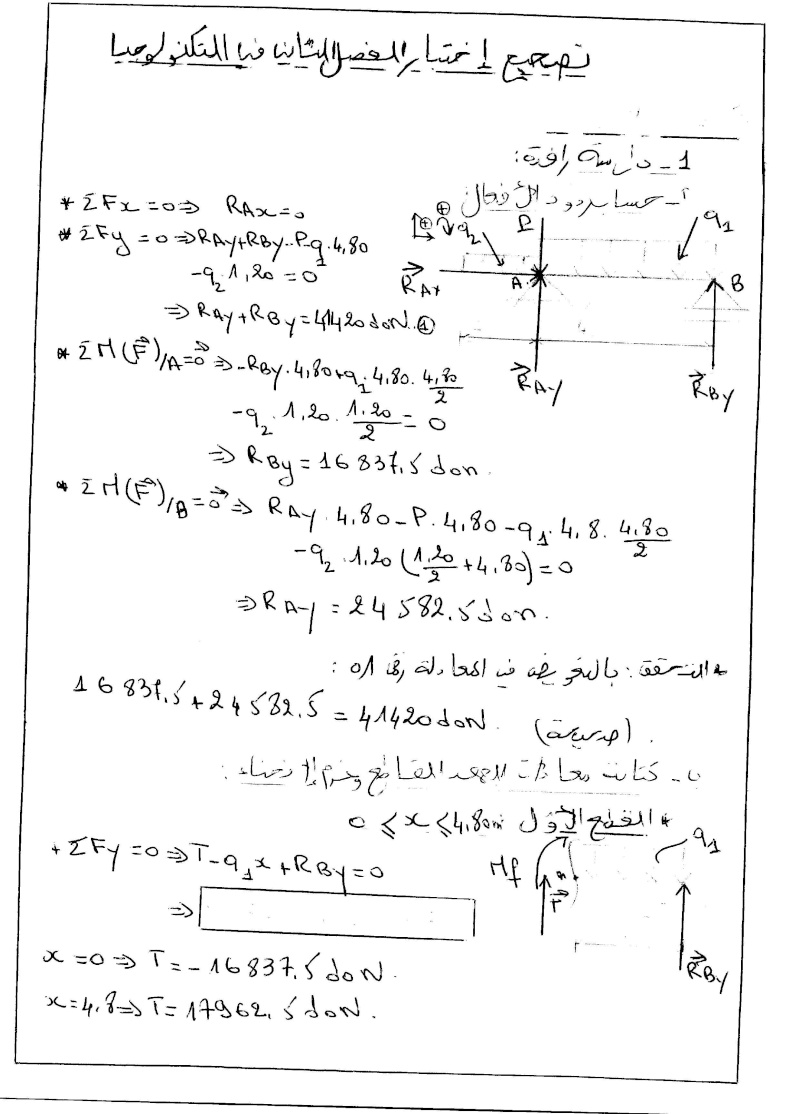 تصحيح إختبار الفصل الثاني في التكنولوجيا
1 - دراسة رافدة:
أ - حساب ردود الأفعال
* ΣFx = 0 ⇒ RAx = 0
* ΣFy = 0 ⇒ RAy + RBy - P - q1 . 4,80
- q2 . 1,20 = 0
⇒ RAy + RBy = 41420 daN. ①
* ΣM(F⃗)/A = 0⃗ ⇒ - RBy . 4,80 + q1 . 4,80 . 4,80/2
- q2 . 1,20 . 1,20/2 = 0
⇒ RBy = 16 837,5 daN.
* ΣM(F⃗)/B = 0⃗ ⇒ RAy . 4,80 - P . 4,80 - q1 . 4,8 . 4,80/2
- q2 . 1,20 (1,20/2 + 4,80) = 0
⇒ RAy = 24 582,5 daN.
⊕ ⊕ q2 P q1
R⃗Ax A B
R⃗Ay R⃗By
* التحقق: بالتعويض في المعادلة رقم 01 :
16 837,5 + 24 582,5 = 41420 daN. (صحيحة).
ب - كتابة معادلات الجهد القاطع وعزم الإنحناء :
* القطع الأول 0 ⩽ x ⩽ 4,80m
+ ΣFy = 0 ⇒ T - q1 x + RBy = 0
⇒
x = 0 ⇒ T = - 16837,5 daN.
x = 4,8 ⇒ T = 17962,5 daN.
Mf T⃗ q1
R⃗By